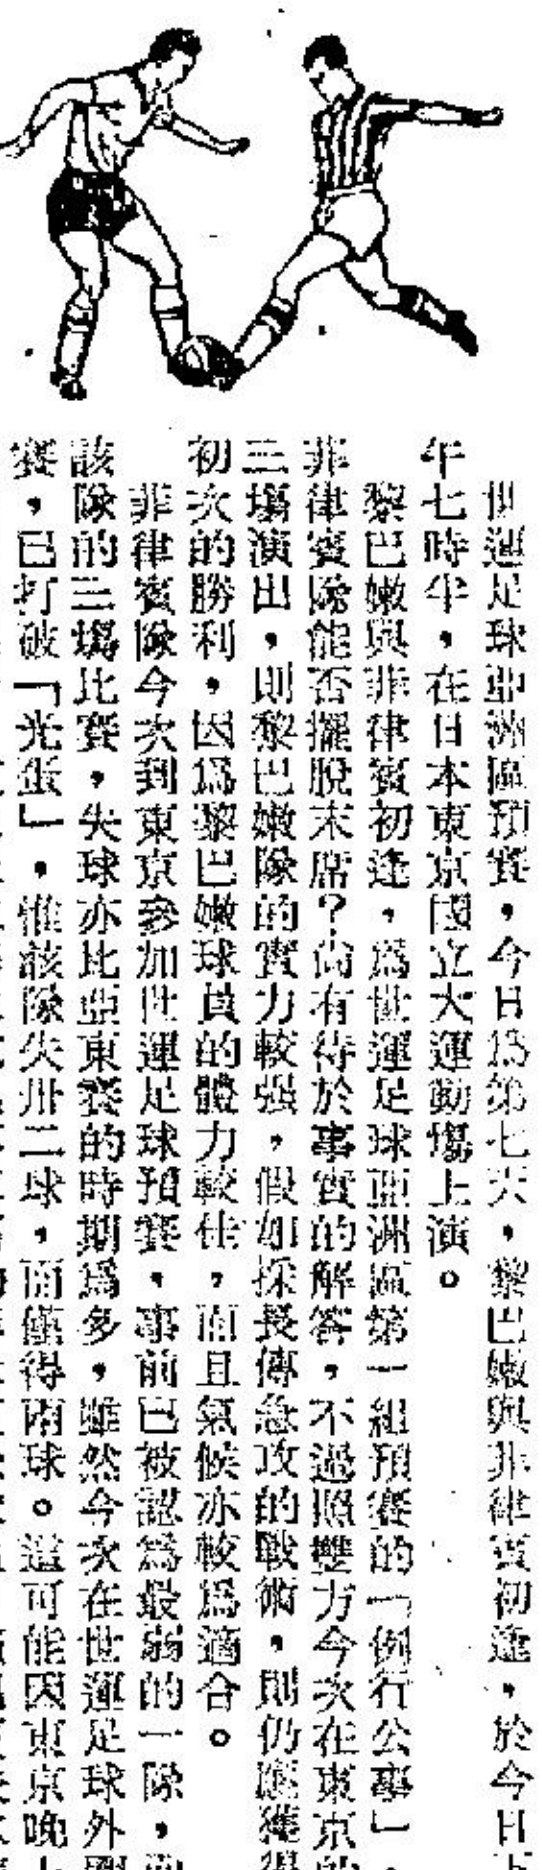 世運足球亞洲區預賽，今日爲第七天，黎巴嫩與菲律賓初逢，於今日下
午七時半，在日本東京國立大運動場上演。
黎巴嫩與菲律賓初逢，爲世運足球亞洲區第一組預賽的「例行公事」，
菲律賓隊能否擺脫末席？尚有待於事實的解答，不過照雙方今次在東京的
三場演出，則黎巴嫩隊的實力較強，假如採長傳急攻的戰術，則仍應獲得
初次的勝利，因爲黎巴嫩球員的體力較佳，而且氣候亦較爲適合。
菲律賓隊今次到東京參加世運足球預賽，事前已被認爲最弱的一隊，而
該隊的三場比賽，失球亦比亞東賽的時期爲多，雖然今次在世運足球外圍
賽，已打破「光蛋」，惟該隊失卅二球，而僅得兩球。這可能因東京晚上